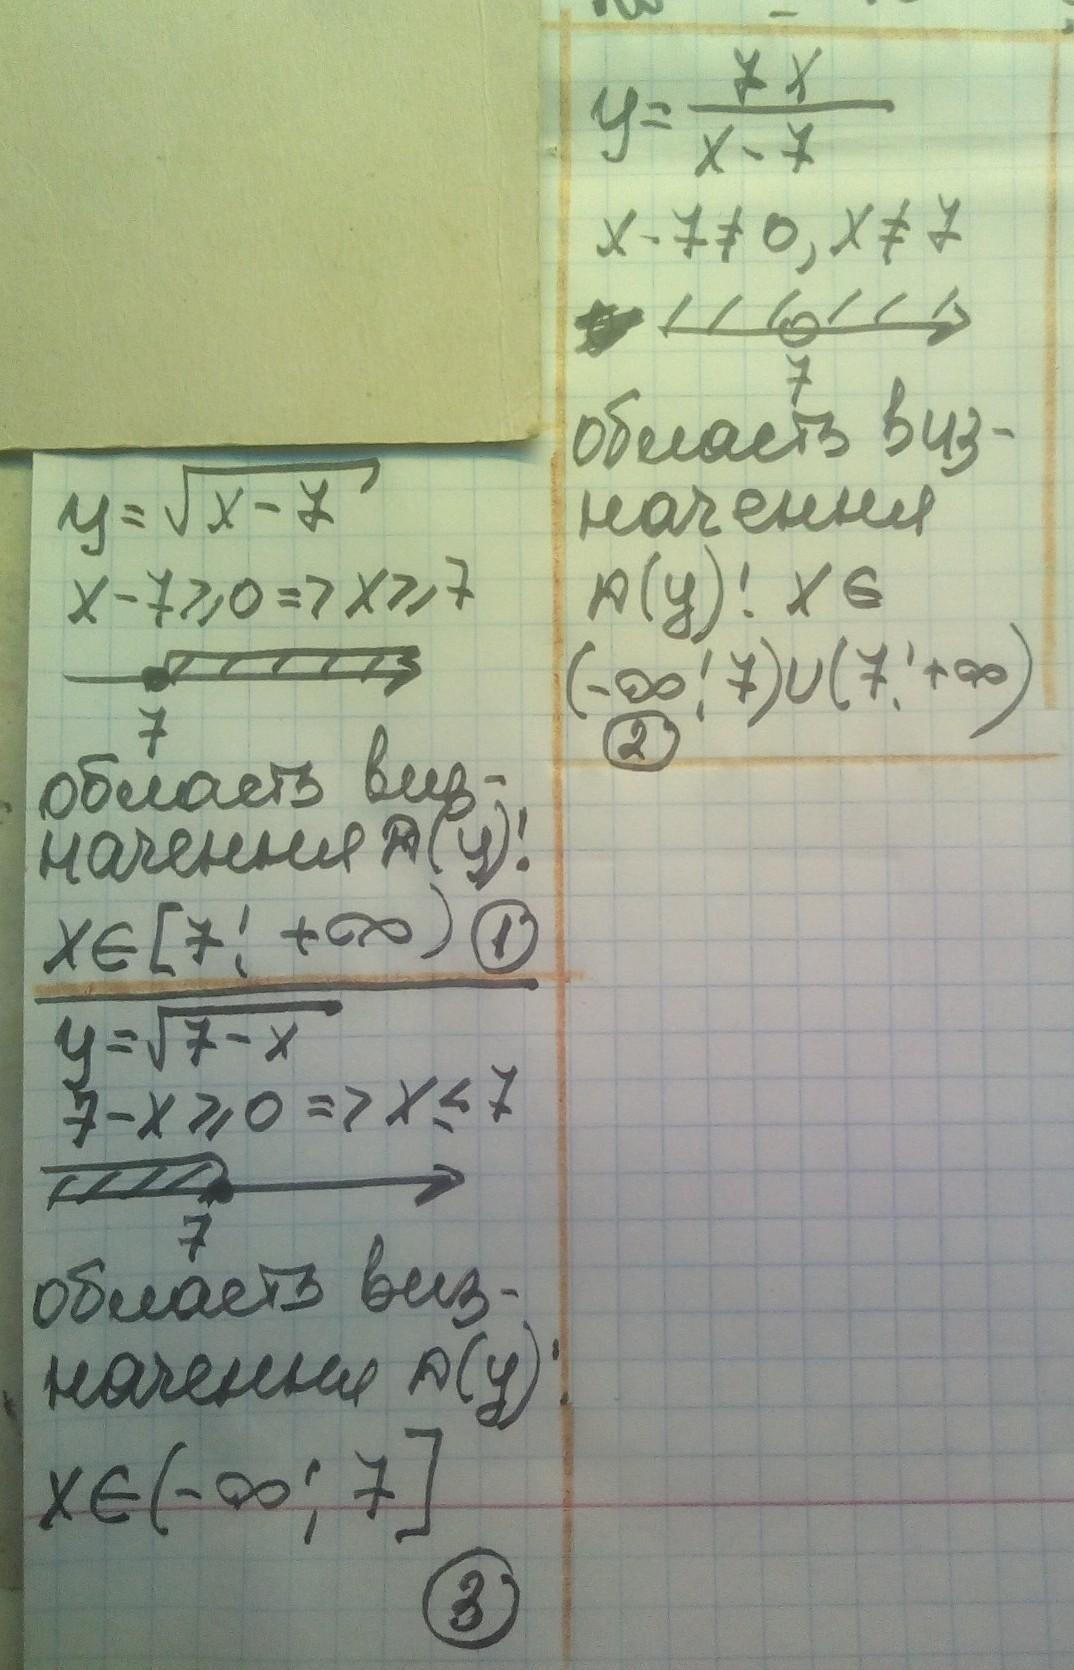 y = √x - 7
x - 7 ≥ 0 => x ≥ 7
7
область виз-
начення D(y):
x ∈ [7; +∞) ①
y = √7 - x
7 - x ≥ 0 => x ≤ 7
7
область виз-
начення D(y):
x ∈ (-∞; 7]
③
y = 7x / x - 7
x - 7 ≠ 0, x ≠ 7
7
область виз-
начення
D(y): x ∈
(-∞; 7) ∪ (7; +∞)
②